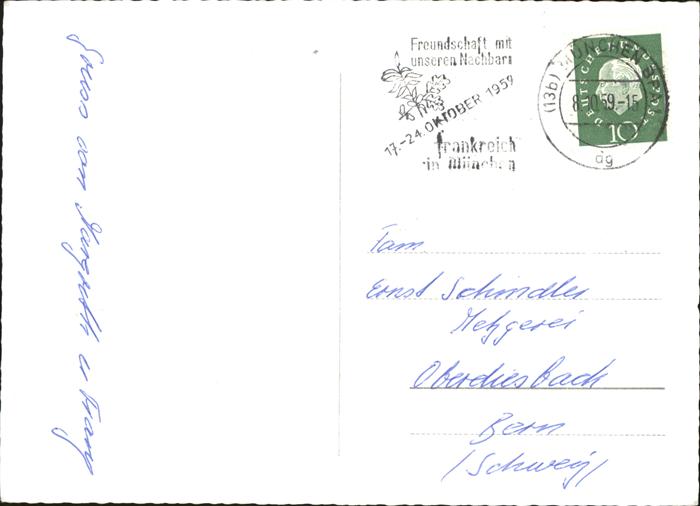 Gruss von Margrith u Franz
Freundschaft mit
unseren Nachbarn
17.-24. OKTOBER 1959
Frankreich
in München
(13b) MÜNCHEN
8.10.59-15
ag
DEUTSCHE BUNDESPOST
10
Fam.
Ernst Schindler
Metzgerei
Oberdiesbach
Bern
/Schweiz/